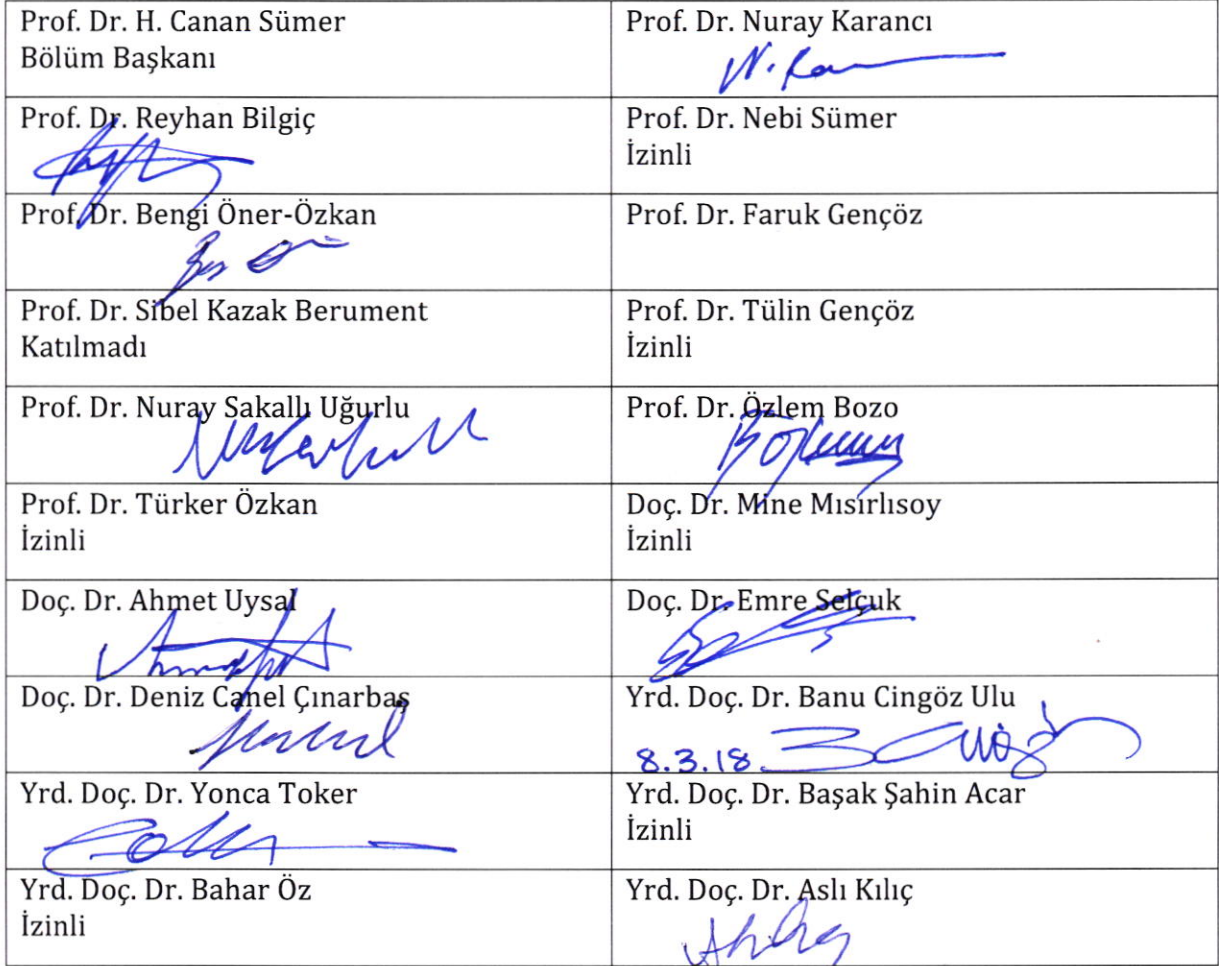 Prof. Dr. H. Canan Sümer
Bölüm Başkanı
Prof. Dr. Nuray Karancı
Prof. Dr. Reyhan Bilgiç
Prof. Dr. Nebi Sümer
İzinli
Prof. Dr. Bengi Öner-Özkan
Prof. Dr. Faruk Gençöz
Prof. Dr. Sibel Kazak Berument
Katılmadı
Prof. Dr. Tülin Gençöz
İzinli
Prof. Dr. Nuray Sakallı Uğurlu
Prof. Dr. Özlem Bozo
Prof. Dr. Türker Özkan
İzinli
Doç. Dr. Mine Mısırlısoy
İzinli
Doç. Dr. Ahmet Uysal
Doç. Dr. Emre Selçuk
Doç. Dr. Deniz Canel Çınarbaş
Yrd. Doç. Dr. Banu Cingöz Ulu
8.3.18.
Yrd. Doç. Dr. Yonca Toker
Yrd. Doç. Dr. Başak Şahin Acar
İzinli
Yrd. Doç. Dr. Bahar Öz
İzinli
Yrd. Doç. Dr. Aslı Kılıç